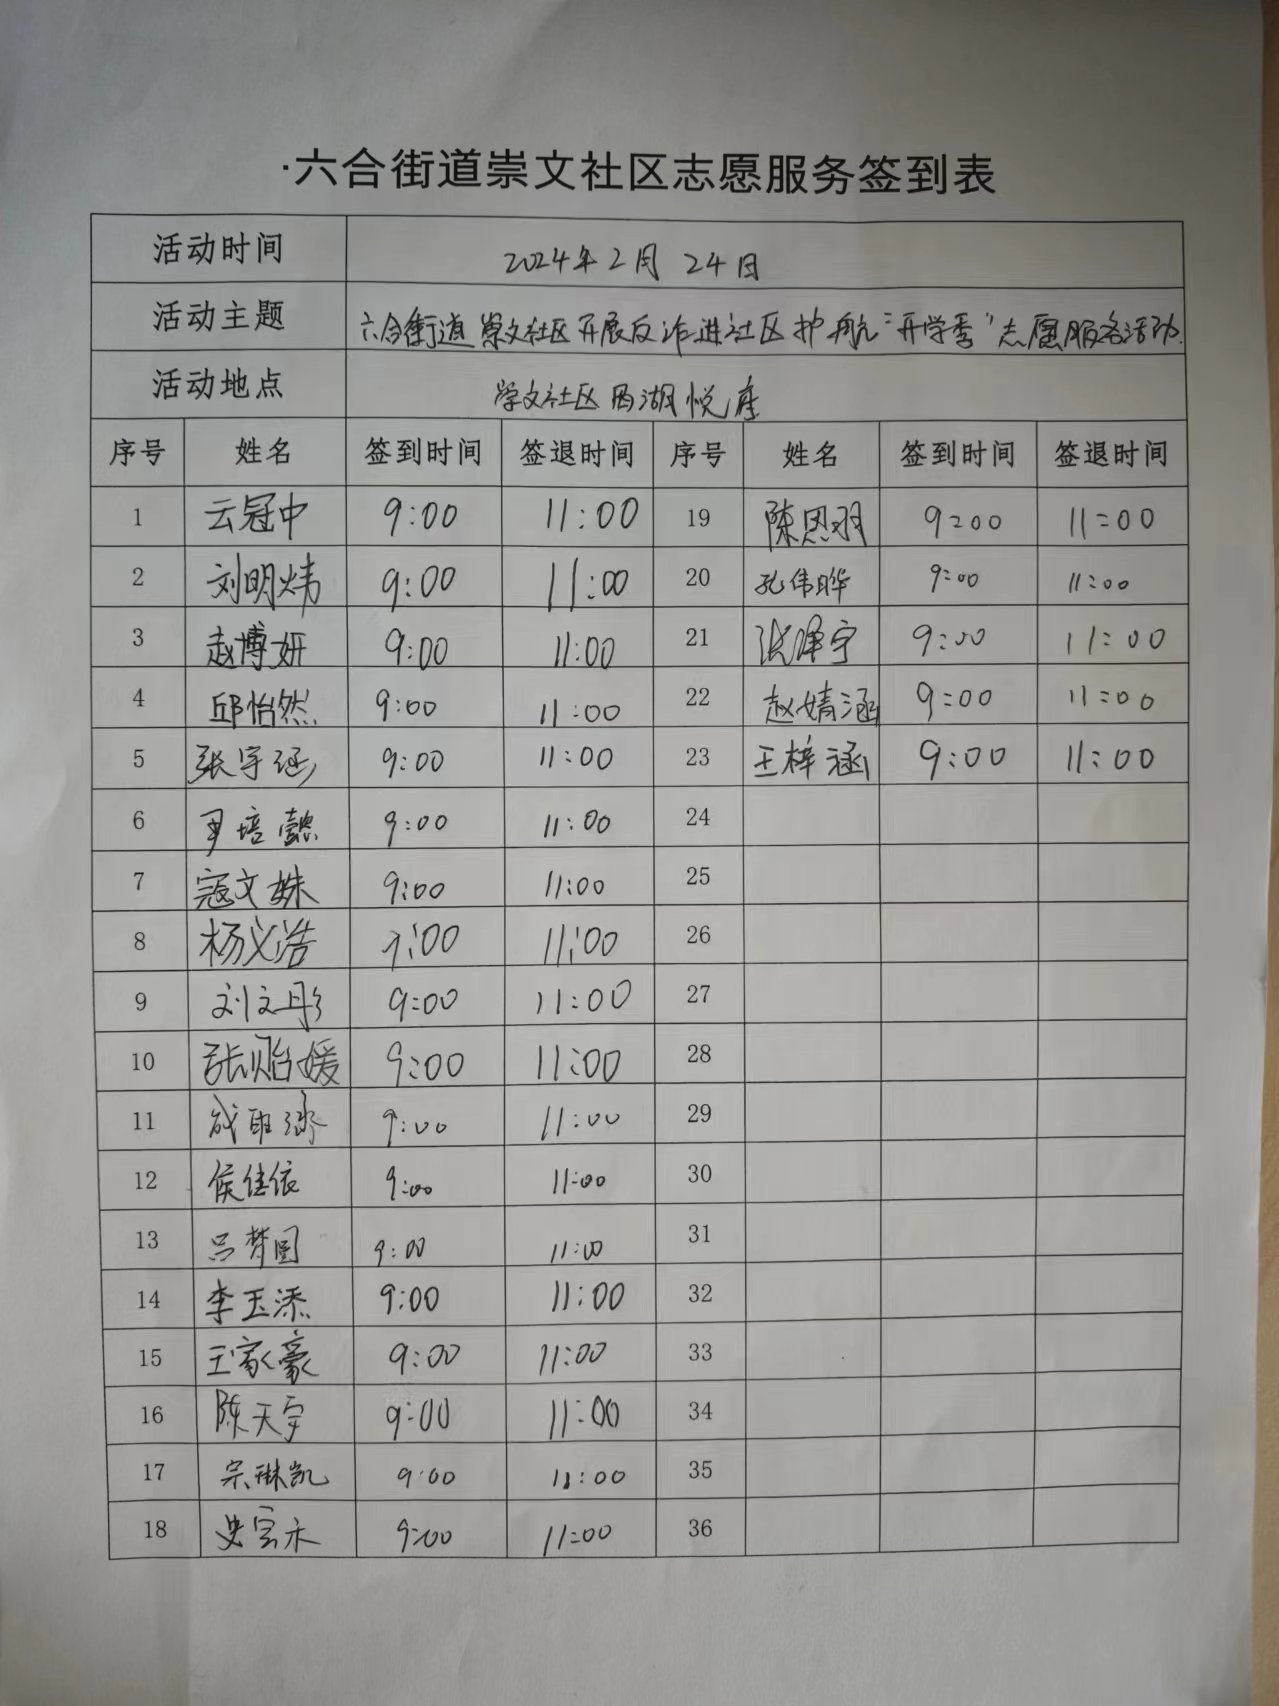 ·六合街道崇文社区志愿服务签到表
活动时间 2024年2月24日
活动主题 六合街道崇文社区开展反诈进社区护航“开学季”志愿服务活动.
活动地点 崇文社区西湖悦府
序号 姓名 签到时间 签退时间 序号 姓名 签到时间 签退时间
1 云冠中 9:00 11:00 19 陈恩羽 9:00 11:00
2 刘明炜 9:00 11:00 20 孔伟晔 9:00 11:00
3 赵博妍 9:00 11:00 21 张泽宇 9:00 11:00
4 邱怡然 9:00 11:00 22 赵婧涵 9:00 11:00
5 张宇涵 9:00 11:00 23 王梓涵 9:00 11:00
6 尹培懿 9:00 11:00 24
7 寇文姝 9:00 11:00 25
8 杨义浩 9:00 11:00 26
9 刘文彤 9:00 11:00 27
10 张贻媛 9:00 11:00 28
11 9:00 11:00 29
12 侯佳依 9:00 11:00 30
13 吕梦圆 9:00 11:00 31
14 李玉添 9:00 11:00 32
15 王家豪 9:00 11:00 33
16 陈天宇 9:00 11:00 34
17 宗琳凯 9:00 11:00 35
18 9:00 11:00 36